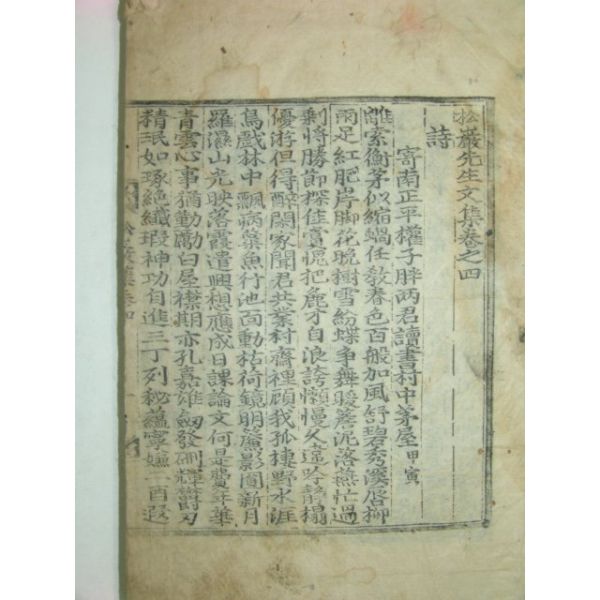 松巖先生文集卷之四
詩
寄南正平權子胖兩君讀書村中茅屋甲寅
離索衡茅似縮蝸任教春色百般加風舒碧秀溪唇柳
雨足紅肥岸脚花晩樹雪紛蝶爭舞暖蔫泥落燕忙過
剩將勝節探佳賞愧把麁才自浪誇懶慢久遠吟榻
優游但得醉閑家聞君共業村齋裡顧我孤棲野水涯
鳥戱林中飄病葉魚行池面動枯荷鏡明簷影圓新月
羅濕山光映落霞遣興想應成日課論文何是費年華
靑雲心事猶勤勵白屋襟期亦孔嘉雄劒發硎輝欝刃
精珉如琢絶纖瑕神功自進三丁列秘蘊寧嫌一酉遐